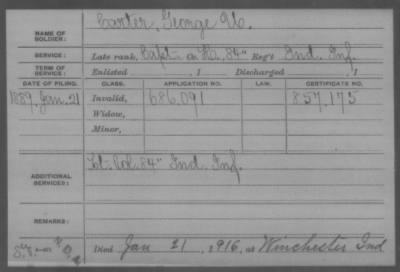 Carter, George U.
NAME OF SOLDIER:
SERVICE: Late rank, Capt. Co. H, 84" Reg't Ind. Inf.
TERM OF SERVICE: Enlisted , 1 Discharged , 1
DATE OF FILING. CLASS. APPLICATION NO. LAW. CERTIFICATE NO.
1889, Jan. 21 Invalid, 686,091 857,175
Widow,
Minor,
ADDITIONAL SERVICES: Lt. Col. 84" Ind. Inf.
REMARKS:
Died Jan 21, 1916, at Winchester Ind